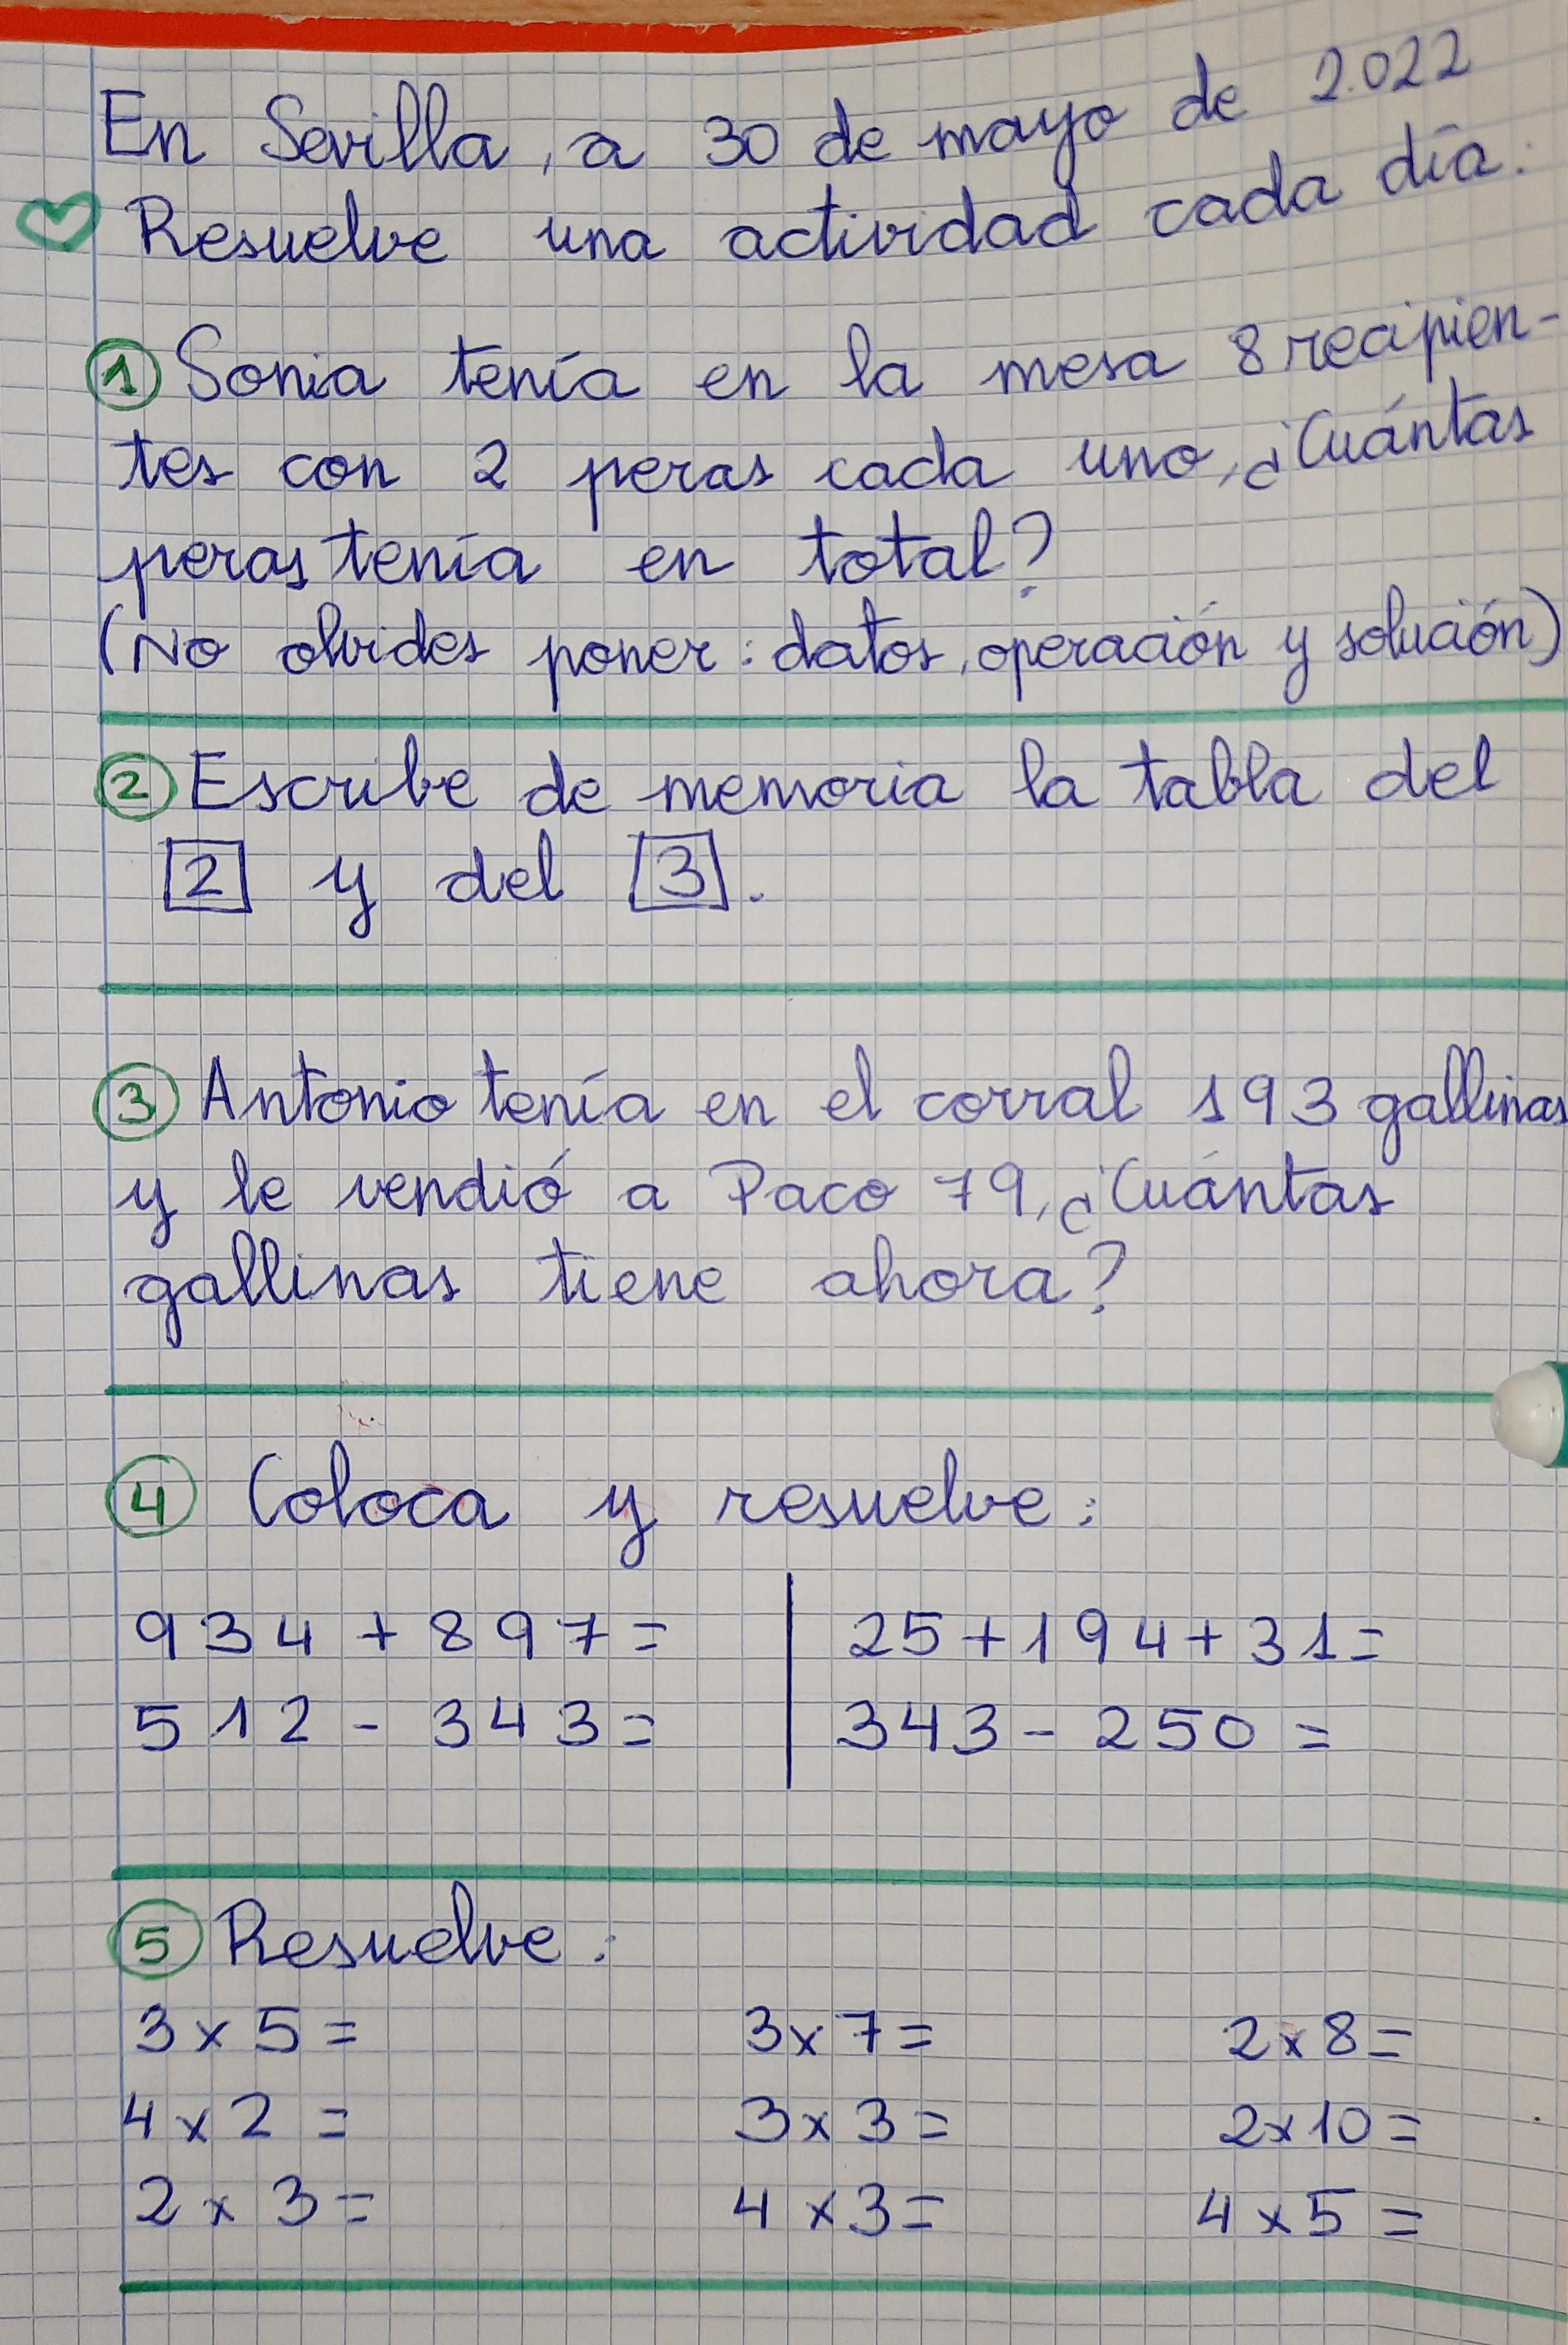 En Sevilla, a 30 de mayo de 2.022
Resuelve una actividad cada día:
1 Sonia tenía en la mesa 8 recipien-
tes con 2 peras cada uno, ¿Cuántas
peras tenía en total?
(No olvides poner: datos, operación y solución)
2 Escribe de memoria la tabla del
2 y del 3.
3 Antonio tenía en el corral 193 gallinas
y le vendió a Paco 79, ¿Cuántas
gallinas tiene ahora?
4 Coloca y resuelve:
934 + 897 = 25 + 194 + 31 =
512 - 343 = 343 - 250 =
5 Resuelve:
3 x 5 = 3 x 7 = 2 x 8 =
4 x 2 = 3 x 3 = 2 x 10 =
2 x 3 = 4 x 3 = 4 x 5 =